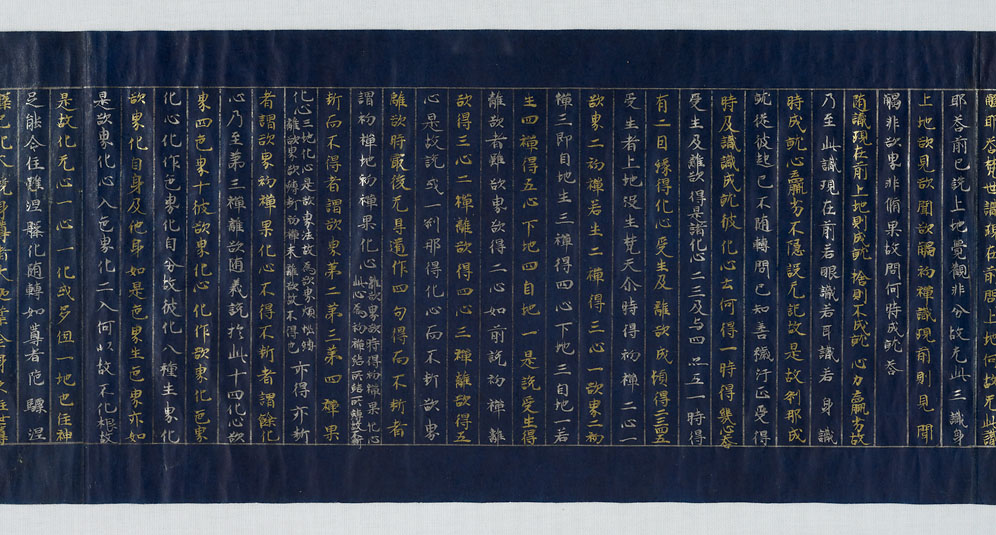 耶荅前已説上地覺觀非分故无此三識身
上地欲見欲聞欲觸初禪識現前則見聞
觸非欲界非脩果故問何時成就荅
随識現在前上地則成就捨則不成就心力羸劣故
乃至此識現在前若眼識若耳識若身識
時成就心羸劣不隱没无記故是故刹那成
就従彼起已不随轉問已知善穢汙正受得
時及識識成就彼化心云何得一時得幾心荅
受生及離欲得是諸化心二三及与四五一時得
有二因縁得化心受生及離欲或頓得二三四五
受生者上地没生梵天尒時得初禪二心一
欲界二初禪若生二禪得三心一欲界二初
禪三即自地生三禪得四心下地三自地一若
生四禪得五心下地四自地一是説受生得
離欲者離欲界欲得二心如前説初禪離
欲得三心二禪離欲得四心三禪離欲得五
心是故説或一刹那得化心而不断欲界
離欲時最後无㝵道作四句得而不断者
謂初禪地初禪果化心離欲界欲時得初禪果化心此心為初禪結所縛故不断
断而不得者謂欲界第二第三第四禪果
化心三地化心是故東法故為欲界煩惱縛離欲界欲縛断初禪未離欲故不得也亦得亦断
者謂欲界初禪果化心不得不断者謂餘化
心乃至第三禪離欲随義説於此十四化心欲
界四色界十彼欲界化心化作欲界化色界
化心化作色界化自分故彼化八種生界化
欲界化自身及他身如是色界生色界亦如
是欲界化心入色界化二入何以故不化根故
是故化无心一心一化或多俱一地也住神
足能令住難涅槃化随轉如尊者陁驃涅